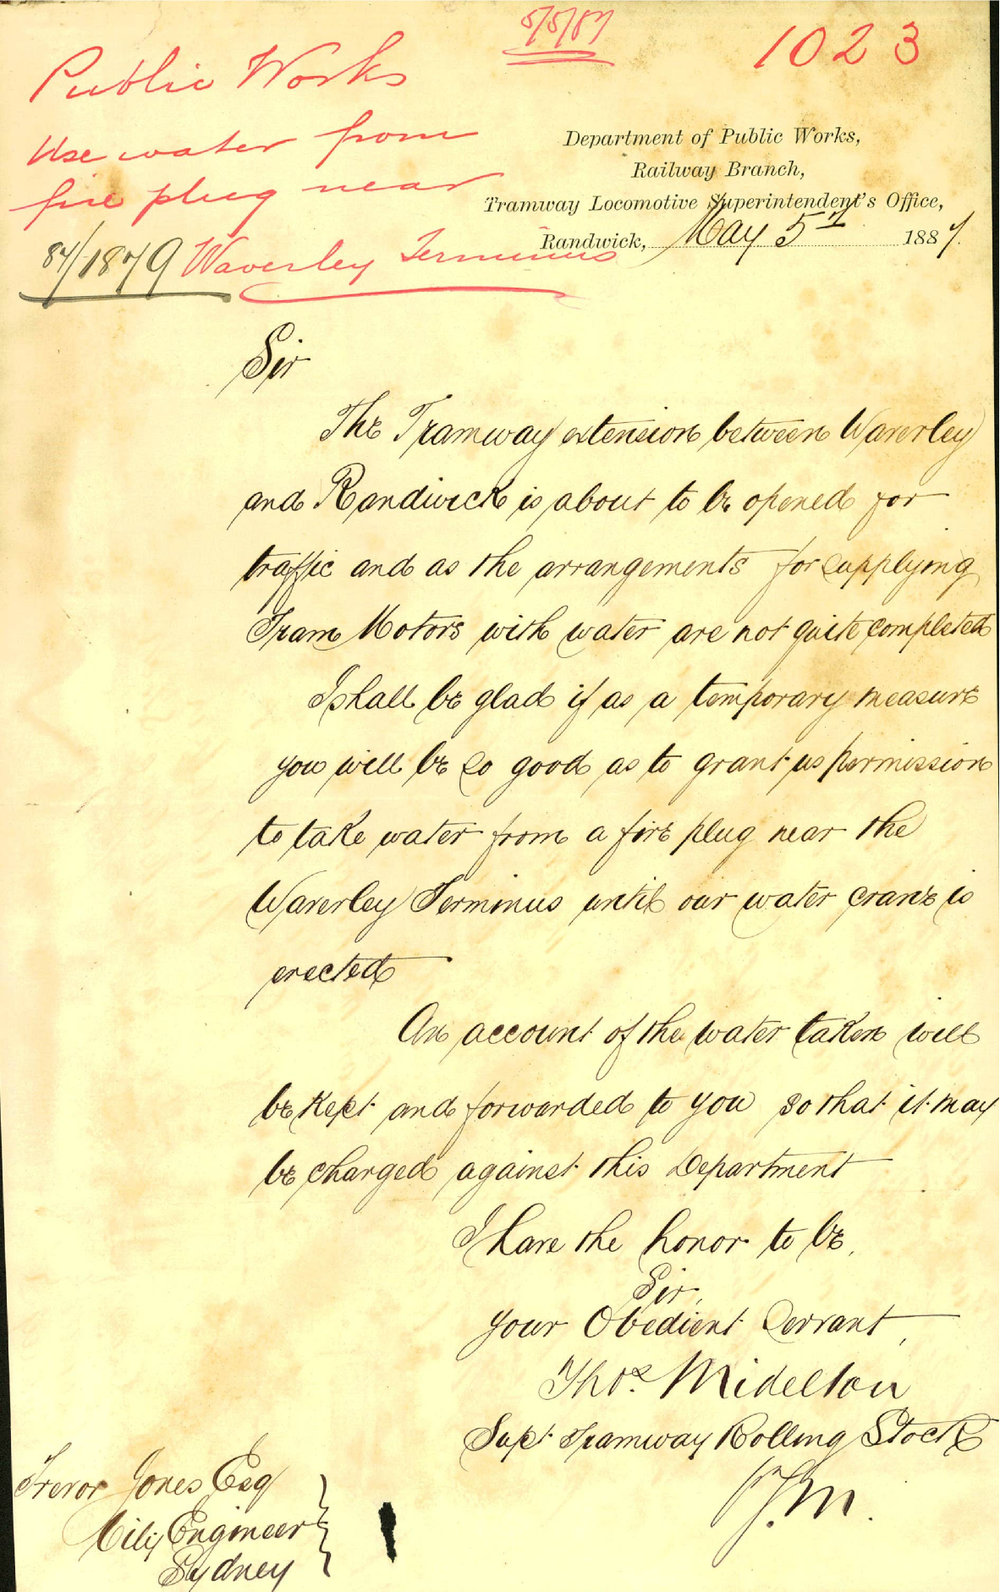 5/5/87
1023
Public Works
Use water from
fire plug near
87/1879 Waverley Terminus
Department of Public Works,
Railway Branch,
Tramway Locomotive Superintendent's Office,
Randwick, May 5th 1887.
Sir
The Tramway extension between Waverley
and Randwick is about to be opened for
traffic and as the arrangements for supplying
Tram Motors with water are not quite completed
I shall be glad if as a temporary measure
you will be so good as to grant us permission
to take water from a fire plug near the
Waverley Terminus until our water crane is
erected
An account of the water taken will
be kept and forwarded to you so that it may
be charged against this Department
I have the honor to be,
Sir,
Your Obedient Servant,
Thos. Midelton
Supt Tramway Rolling Stock
J.M.
Trevor Jones Esq
City Engineer
Sydney